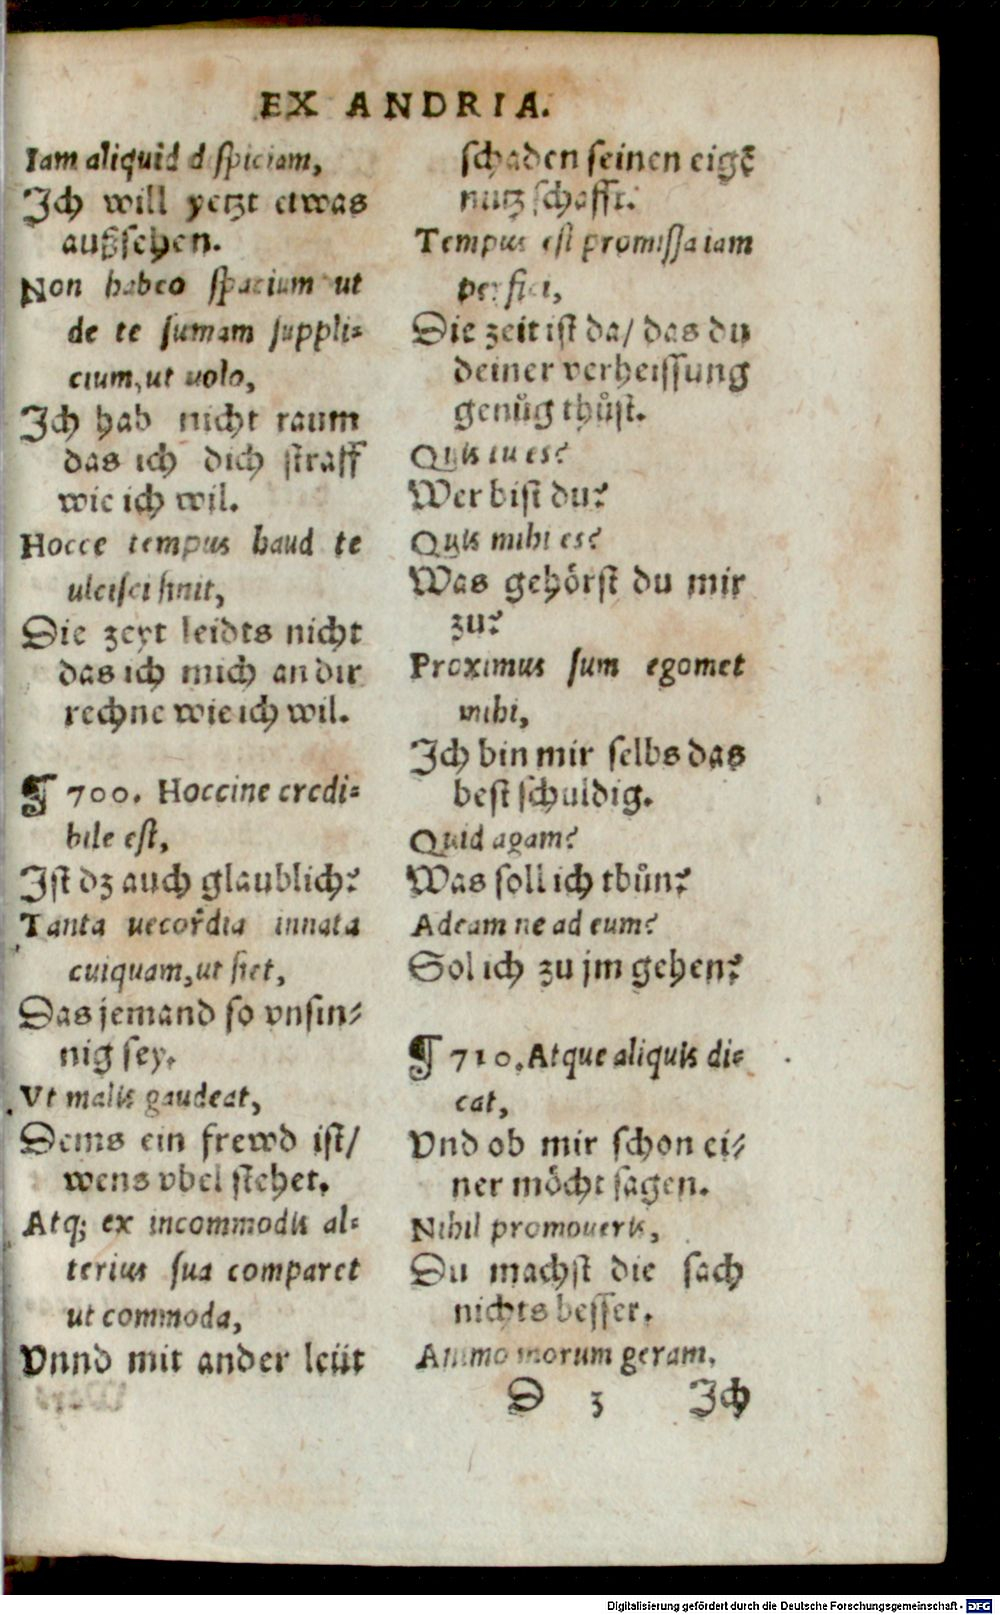 EX ANDRIA.
Iam aliquid dispiciam,
Ich will yetzt etwas
außsehen.
Non habeo spacium ut
de te sumam suppli=
cium, ut uolo,
Ich hab nicht raum
das ich dich straff
wie ich wil.
Hocce tempus haud te
ulcisci sinit,
Die zeyt leidts nicht
das ich mich an dir
rechne wie ich wil.
¶ 700. Hoccine credi=
bile est,
Ist dz auch glaublich?
Tanta uecordia innata
cuiquam, ut siet,
Das jemand so vnsin=
nig sey.
Vt malis gaudeat,
Dems ein frewd ist/
wens vbel stehet.
Atq; ex incommodis al=
terius sua comparet
ut commoda,
Vnnd mit ander leüt
schaden seinen eigē
nutz schafft.
Tempus est promissa iam
perfici,
Die zeit ist da/ das du
deiner verheissung
genůg thůst.
Quis tu es?
Wer bist du?
Quis mihi es?
Was gehörst du mir
zu?
Proximus sum egomet
mihi,
Ich bin mir selbs das
best schuldig.
Quid agam?
Was soll ich thůn?
Adeam ne ad eum?
Sol ich zu jm gehen?
¶ 710. Atque aliquis di=
cat,
Vnd ob mir schon ei=
ner möcht sagen.
Nihil promoueris,
Du machst die sach
nichts besser.
Animo morum geram.
D 3 Ich
Digitalisierung gefördert durch die Deutsche Forschungsgemeinschaft - DFG